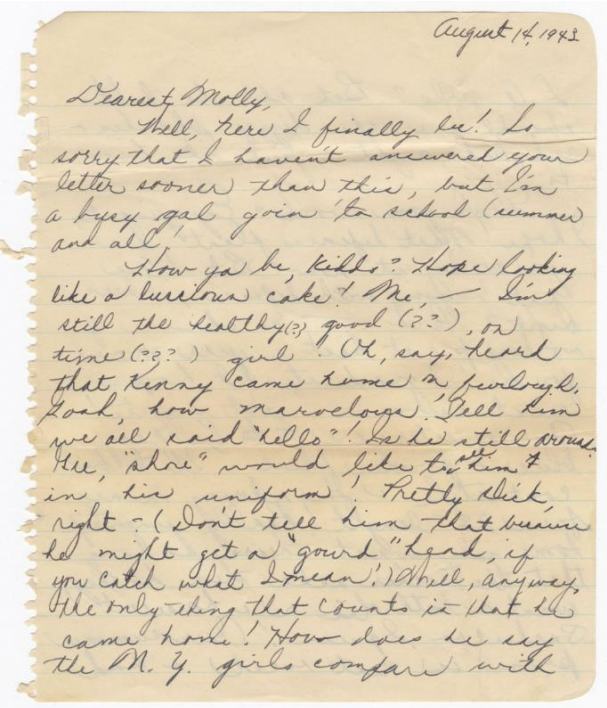 August 14, 1943
Dearest Molly,
Well, here I finally be! So
sorry that I haven't answered your
letter sooner than this, but I'm
a busy gal goin' to school (summer
and all!
How ya be, Kiddo? Hope looking
like a lussioun cake! Me, — I'm
still the healthy (?) good (??), on
time (???) girl! Oh, say, heard
that Kenny came home on furlough.
Gosh, how marvelous! Tell him
we all said "hello"! Is he still around.
Gee, "shore" would like to see him
in his uniform! Pretty slick,
right? (Don't tell him that because
he might get a "gourd" head, if
you catch what I mean!) Well, anyway,
the only thing that counts is that he
came home! How does he say
the N.Y. girls compare with